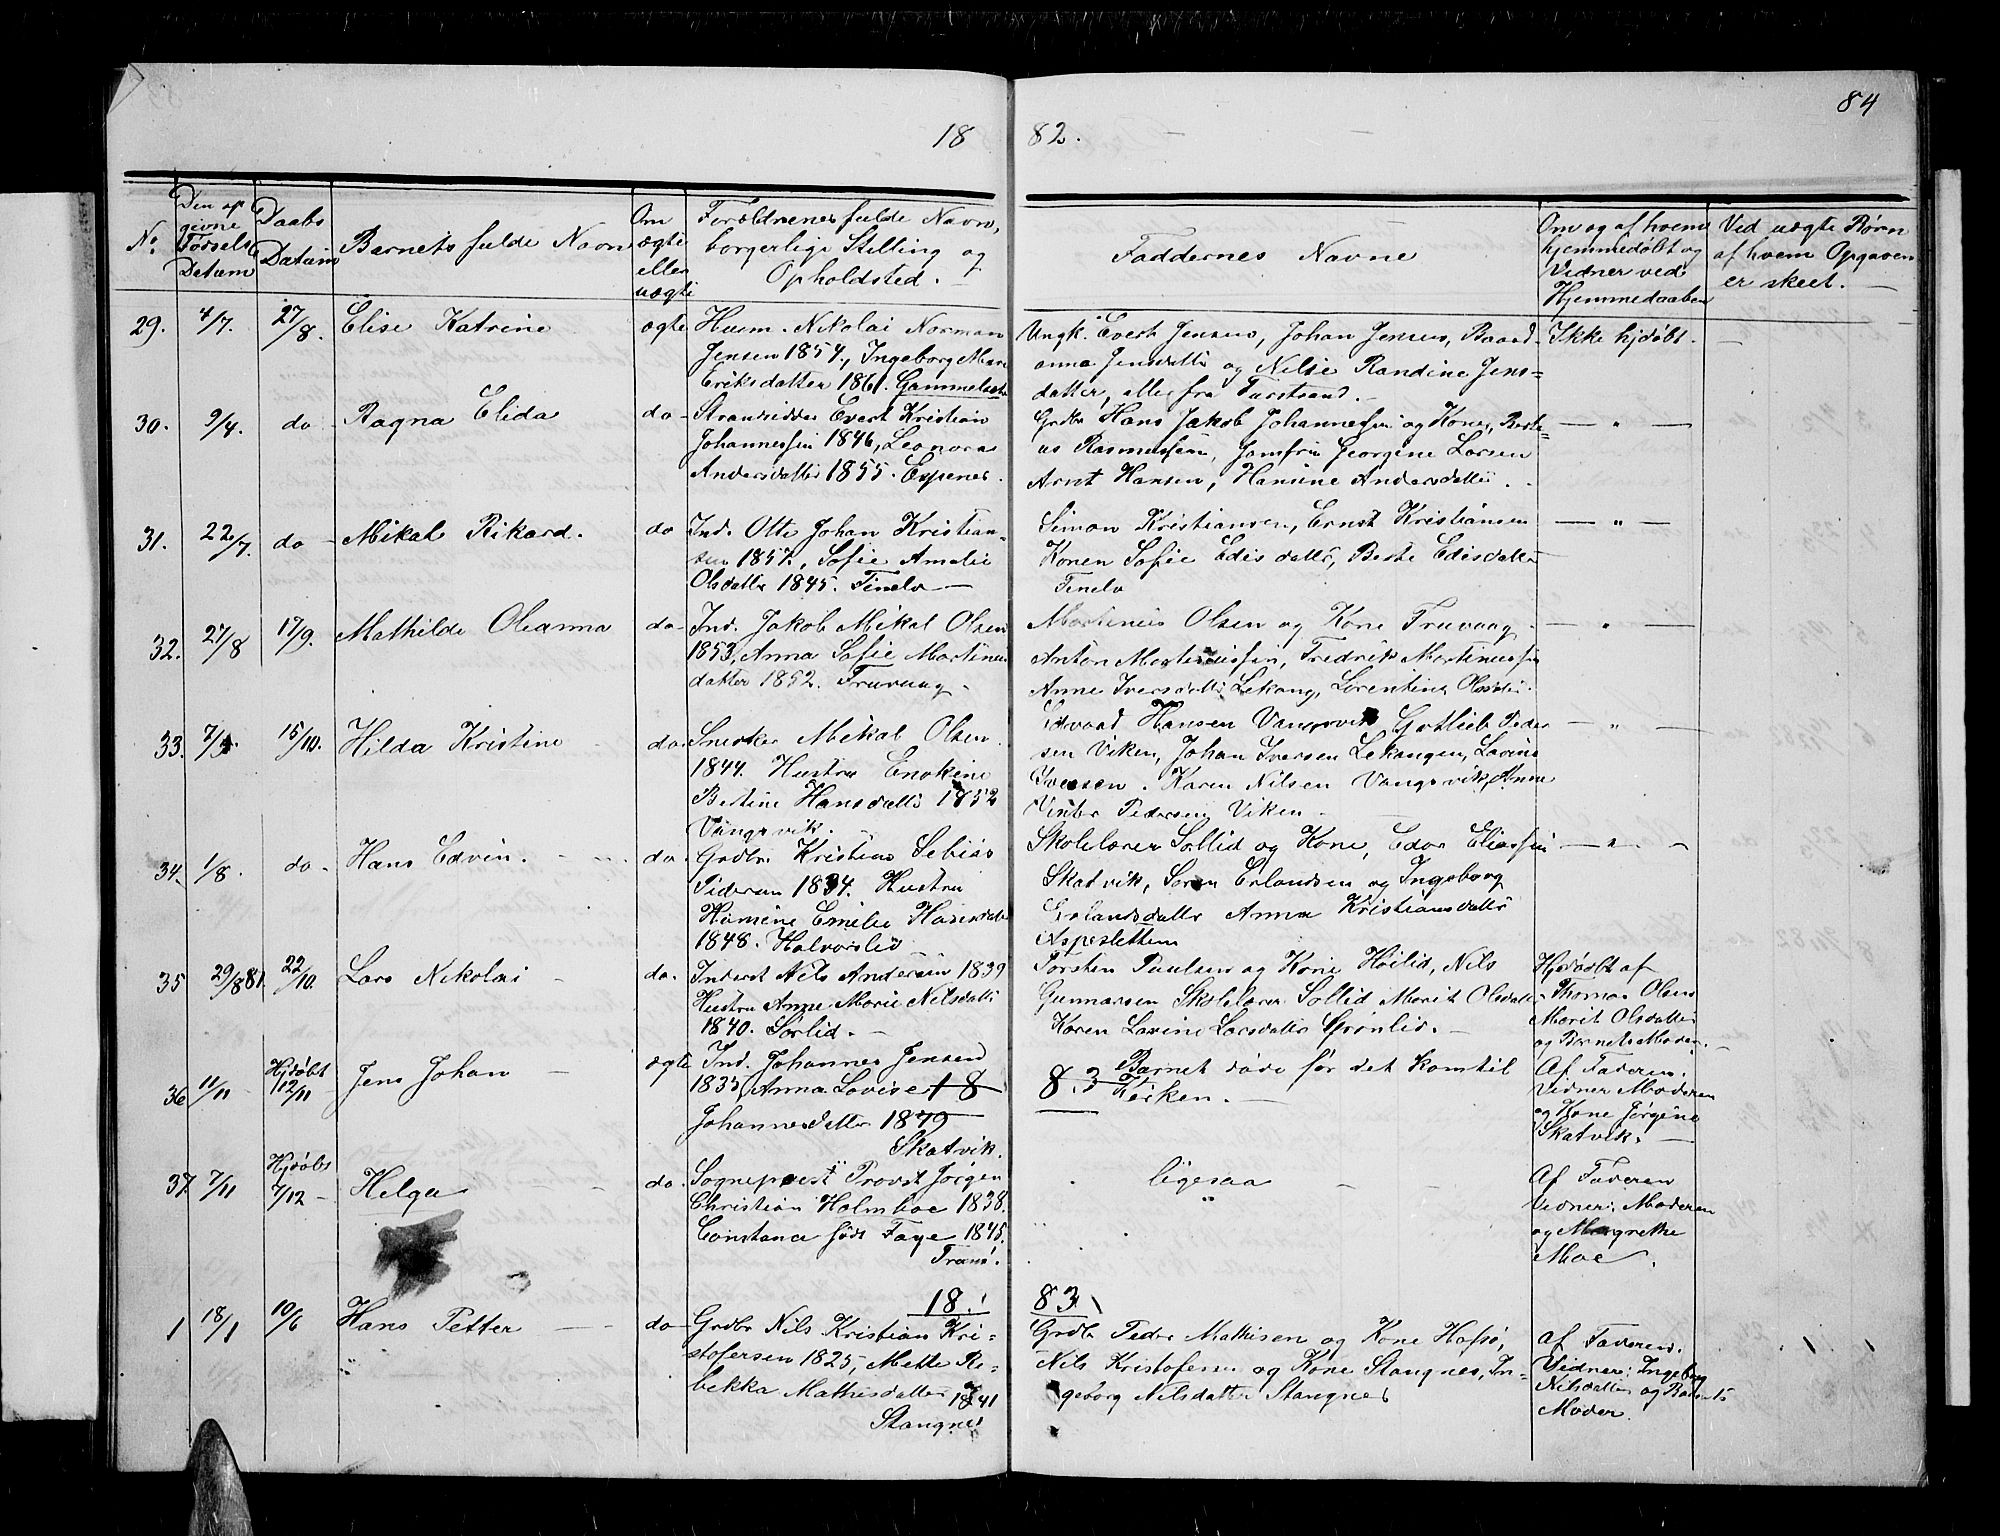 84
18 82.
No.
Den op
givne
Fødsels
Datum
Daabs
Datum
Barnets fulde Navn
Om
ægte
eller
uægte
Forældrenes fulde Navn,
borgerlige Stilling og
Opholdsted.
Faddernes Navne
Om og af hvem
hjemmedøbt og
Vidner ved
Hjemmedaaben
Ved uægte Børn
af hvem Opgaven
er skeet.
29. 4/7. 27/8. Elise Katrine ægte
Husm. Nikolai Norman
Jensen 1854, Ingeborg
Eriksdatter 1861.
Ungk. Evert Jensen, Johan Jensen,
anna Jensdatter og Nilsie Randine Jens-
datter, alle fra
Ikke hjdøbt.
30. 9/4. do Ragna Elida do
Strandsidder Evert Kristian
Johannessen 1846, Leonora
Andersdatter 1855. Espenes.
Grdbr Hans Jakob Johannessen og Kone,
Rasmussen, Jomfru Georgine Larsen
Arnt Hansen, Hansine Andersdatter.
— " —
31. 22/7. do Mikal Rikard. do
Ind. Otto Johan Kristian-
sen 1857, Sofie Amalie
Olsdatter 1845. Finelv
Simon Kristiansen, Ernst Kristiansen
Konen Sofie Edisdatter, Berte Edisdatter
Finelv
— " —
32. 27/8 17/9. Mathilde Oleanna do
Ind. Jakob Mikal Olsen
1853, Anna Sofie Martinus
datter 1852. Fruvaag.
Martinus Olsen og Kone Fruvaag.
Anton Martinussen, Fredrik Martinussen
Anne Iversdatter Lekang, Lorentine Olsdatter.
— " —
33. 15/10. Hilda Kristine do
Snecker Mikal Olsen.
1844. Hustru Enokine
Bertine Hansdatter 1852
Vangsvik.
Edvard Hansen Vangsvik Gotlieb Peder
sen Viken, Johan Iversen Lekangen, Lavine
Iversen. Karen Nilsen Vangsvik, Anne
Pedersen Viken.
— " —
34. 1/8. do. Hans Edvin. do.
Grdbr. Kristian
Pedersen 1834. Hustru
Emelie Hansdatter
1848. Halvorslid
Skolelærer Sollid og Kone, Edor Eliassen
Skatvik, Søren Erlandsen og Ingeborg
Erlandsdatter Anna Kristiansdatter
Aspesletten
— " —
35 29/8 81 22/10. Lars Nikolai do.
Inderst Nils Andersen 1839
Hustru Anne Marie Nilsdatter
1840. Sørlid.
Torsten Paulsen og Kone Høilid, Nils
Gunnarsen Skolelærer Sollid Marit Olsdatter
Karen Lavine Larsdatter Grønlid.
Hjdøbt af
Thomas Olsen
Marit Olsdatter
og Barnets Moder.
36 11/11 Hjdøbt
12/11 Jens Johan ægte
Ind. Johannes Jensen
1835, Anna Lovise 18
Johannesdatter 1849
Skatvik.
83
Barnet døde før det kom til
Kirken.
Af Faderen.
Vidner Moderen
og Kone Jørgine
Skatvik.
37 7/11 Hjdøbt
7/12 Helga do.
Sognepræst Provst Jørgen
Christian Holmboe 1838.
Constance født Faye 1845.
Tranø.
ligesaa
"
Af Faderen
Vidner: Moderen
og Margrethe
Moe.
18 83
1 18/1 10/6 Hans Petter do
Grdbr Nils Kristian Kri-
stofersen 1825, Mette Re-
bekka Mathisdatter 1841
Stangnes
Grdbr Peder Mathisen og Kone Hofsø,
Nils Kristofersen og Kone Stangnes, In-
geborg Nilsdatter Stangnes
af Faderen.
Vidner: Ingeborg
Nilsdatter og Barnets
Moder.